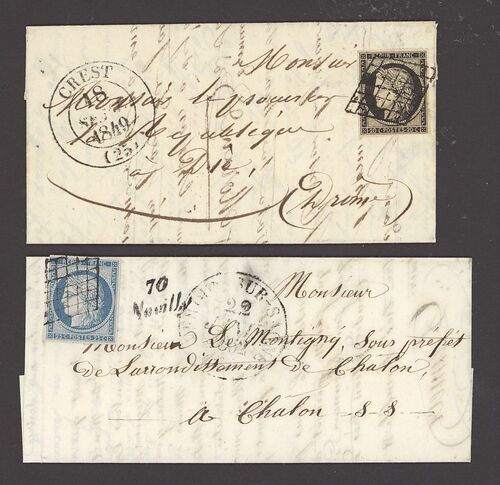 REPUB FRANC
20 c POSTES 20 c
CREST
18
SEPT
1849
(25)
Monsieur
Monsieur le procureur
de la République
à Die
Drôme
REPUB FRANC
25 c POSTES 25 c
70
Noailly
22
Monsieur
Monsieur De Montigny, sous préfet
de L'arrondissement de Chalon,
à Chalon -s-s-